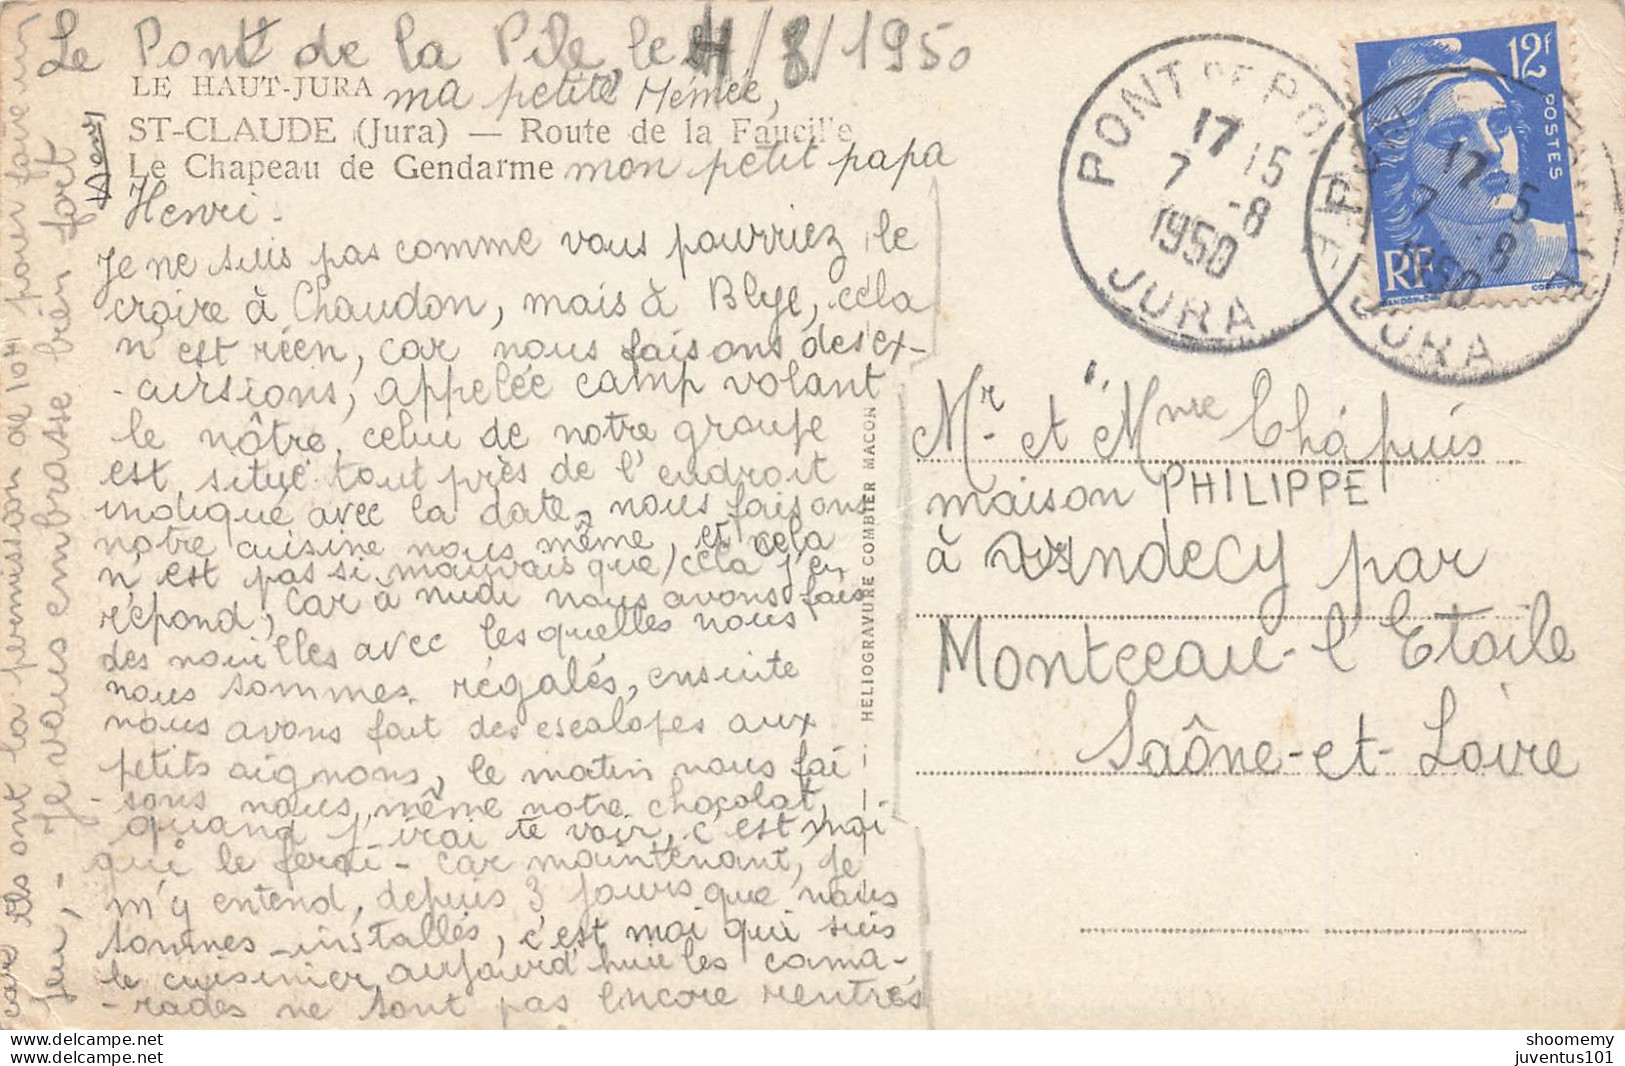 Le Pont de la Pile, le 4/8/1950
LE HAUT-JURA
ma petite Mémée,
ST-CLAUDE (Jura) — Route de la Faucille
Le Chapeau de Gendarme
mon petit papa
Henri.
Je ne suis pas comme vous pourriez le
croire à Chaudon, mais à Blye, cela
n'est rien, car nous faisons des ex-
-cursions, appelée camp volant
le nôtre, celui de notre groupe
est situé tout près de l'endroit
indiqué avec la date, nous faisons
notre cuisine nous même, et cela
n'est pas si mauvais que cela j'en
répond, car à midi nous avons fais
des nouilles avec lesquelles nous
nous sommes régalés, ensuite
nous avons fait des escalopes aux
petits oignons, le matin nous fai
-sons nous, même notre chocolat,
quand j'irai te voir, c'est moi
qui le ferai - car maintenant, je
m'y entend, depuis 3 jours que nous
sommes installés, c'est moi qui suis
le cuisinier, aujourd'hui les cama-
-rades ne sont pas encore rentrés
car ils ont la permission de 10H pour faire un
jeu, - Je vous embrasse bien fort
Henri
HELIOGRAVURE COMBIER MACON
PONT DE PO
17 15
7 -8
1950
JURA
17 5
7 -8
1950
JURA
12F
POSTES
RF
Mr et Mme Chapuis
maison PHILIPPE
à Vindecy par
Montceau-l'Etoile
Saône-et-Loire
shoomemy
juventus101